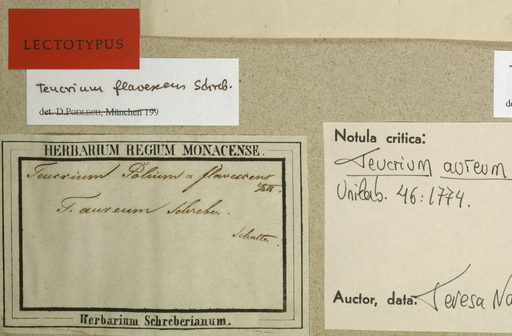 LECTOTYPUS
Teucrium flavescens Schreb.
det. D.PODLECH, München 199
HERBARIUM REGIUM MONACENSE.
Teucrium Polium α flavescens
T. aureum Schreber.
Schultes.
Herbarium Schreberianum.
Notula critica:
Teucrium aureum
Unilab. 46:1774.
Auctor, data: Teresa Na